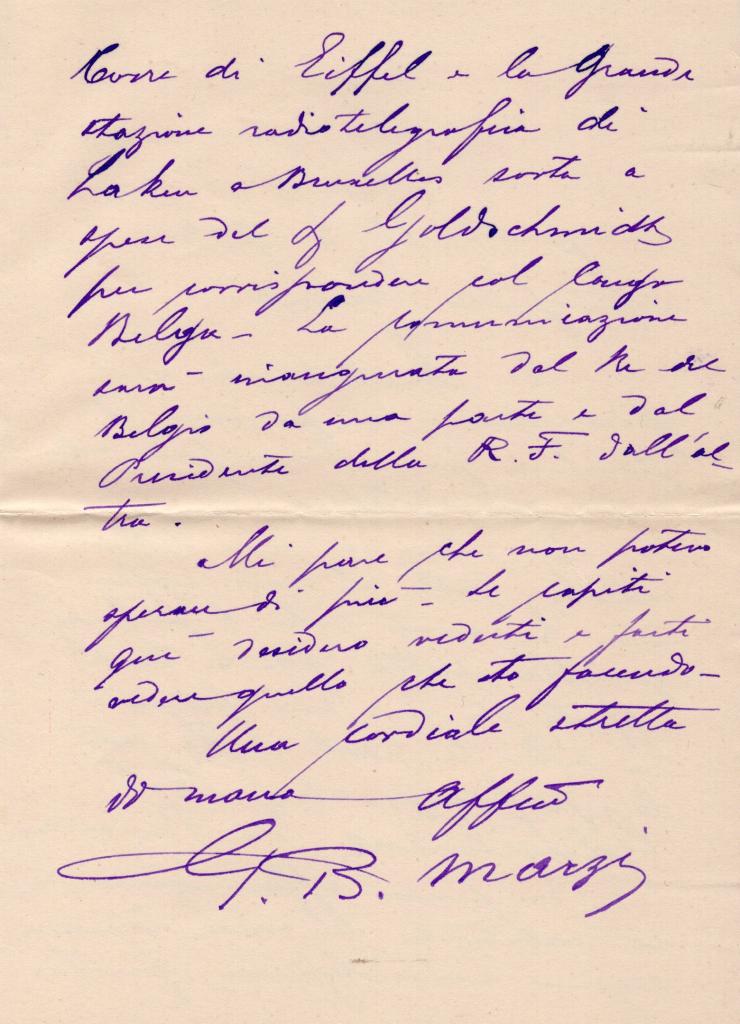 Torre di Eiffel e la Grande
stazione radiotelegrafica di
Laken a Bruxelles sorta a
spese del Goldschmidt
per corrispondere col Congo
Belga - La comunicazione
sarà inaugurata dal Re del
Belgio da una parte e dal
Presidente della R. F. dall'al-
tra.
Mi pare che non potevo
sperare di più - Se capiti
quì desidero vederti e farti
vedere quello che sto facendo -
Una cordiale stretta
di mano Affmo
G. B. Marzi